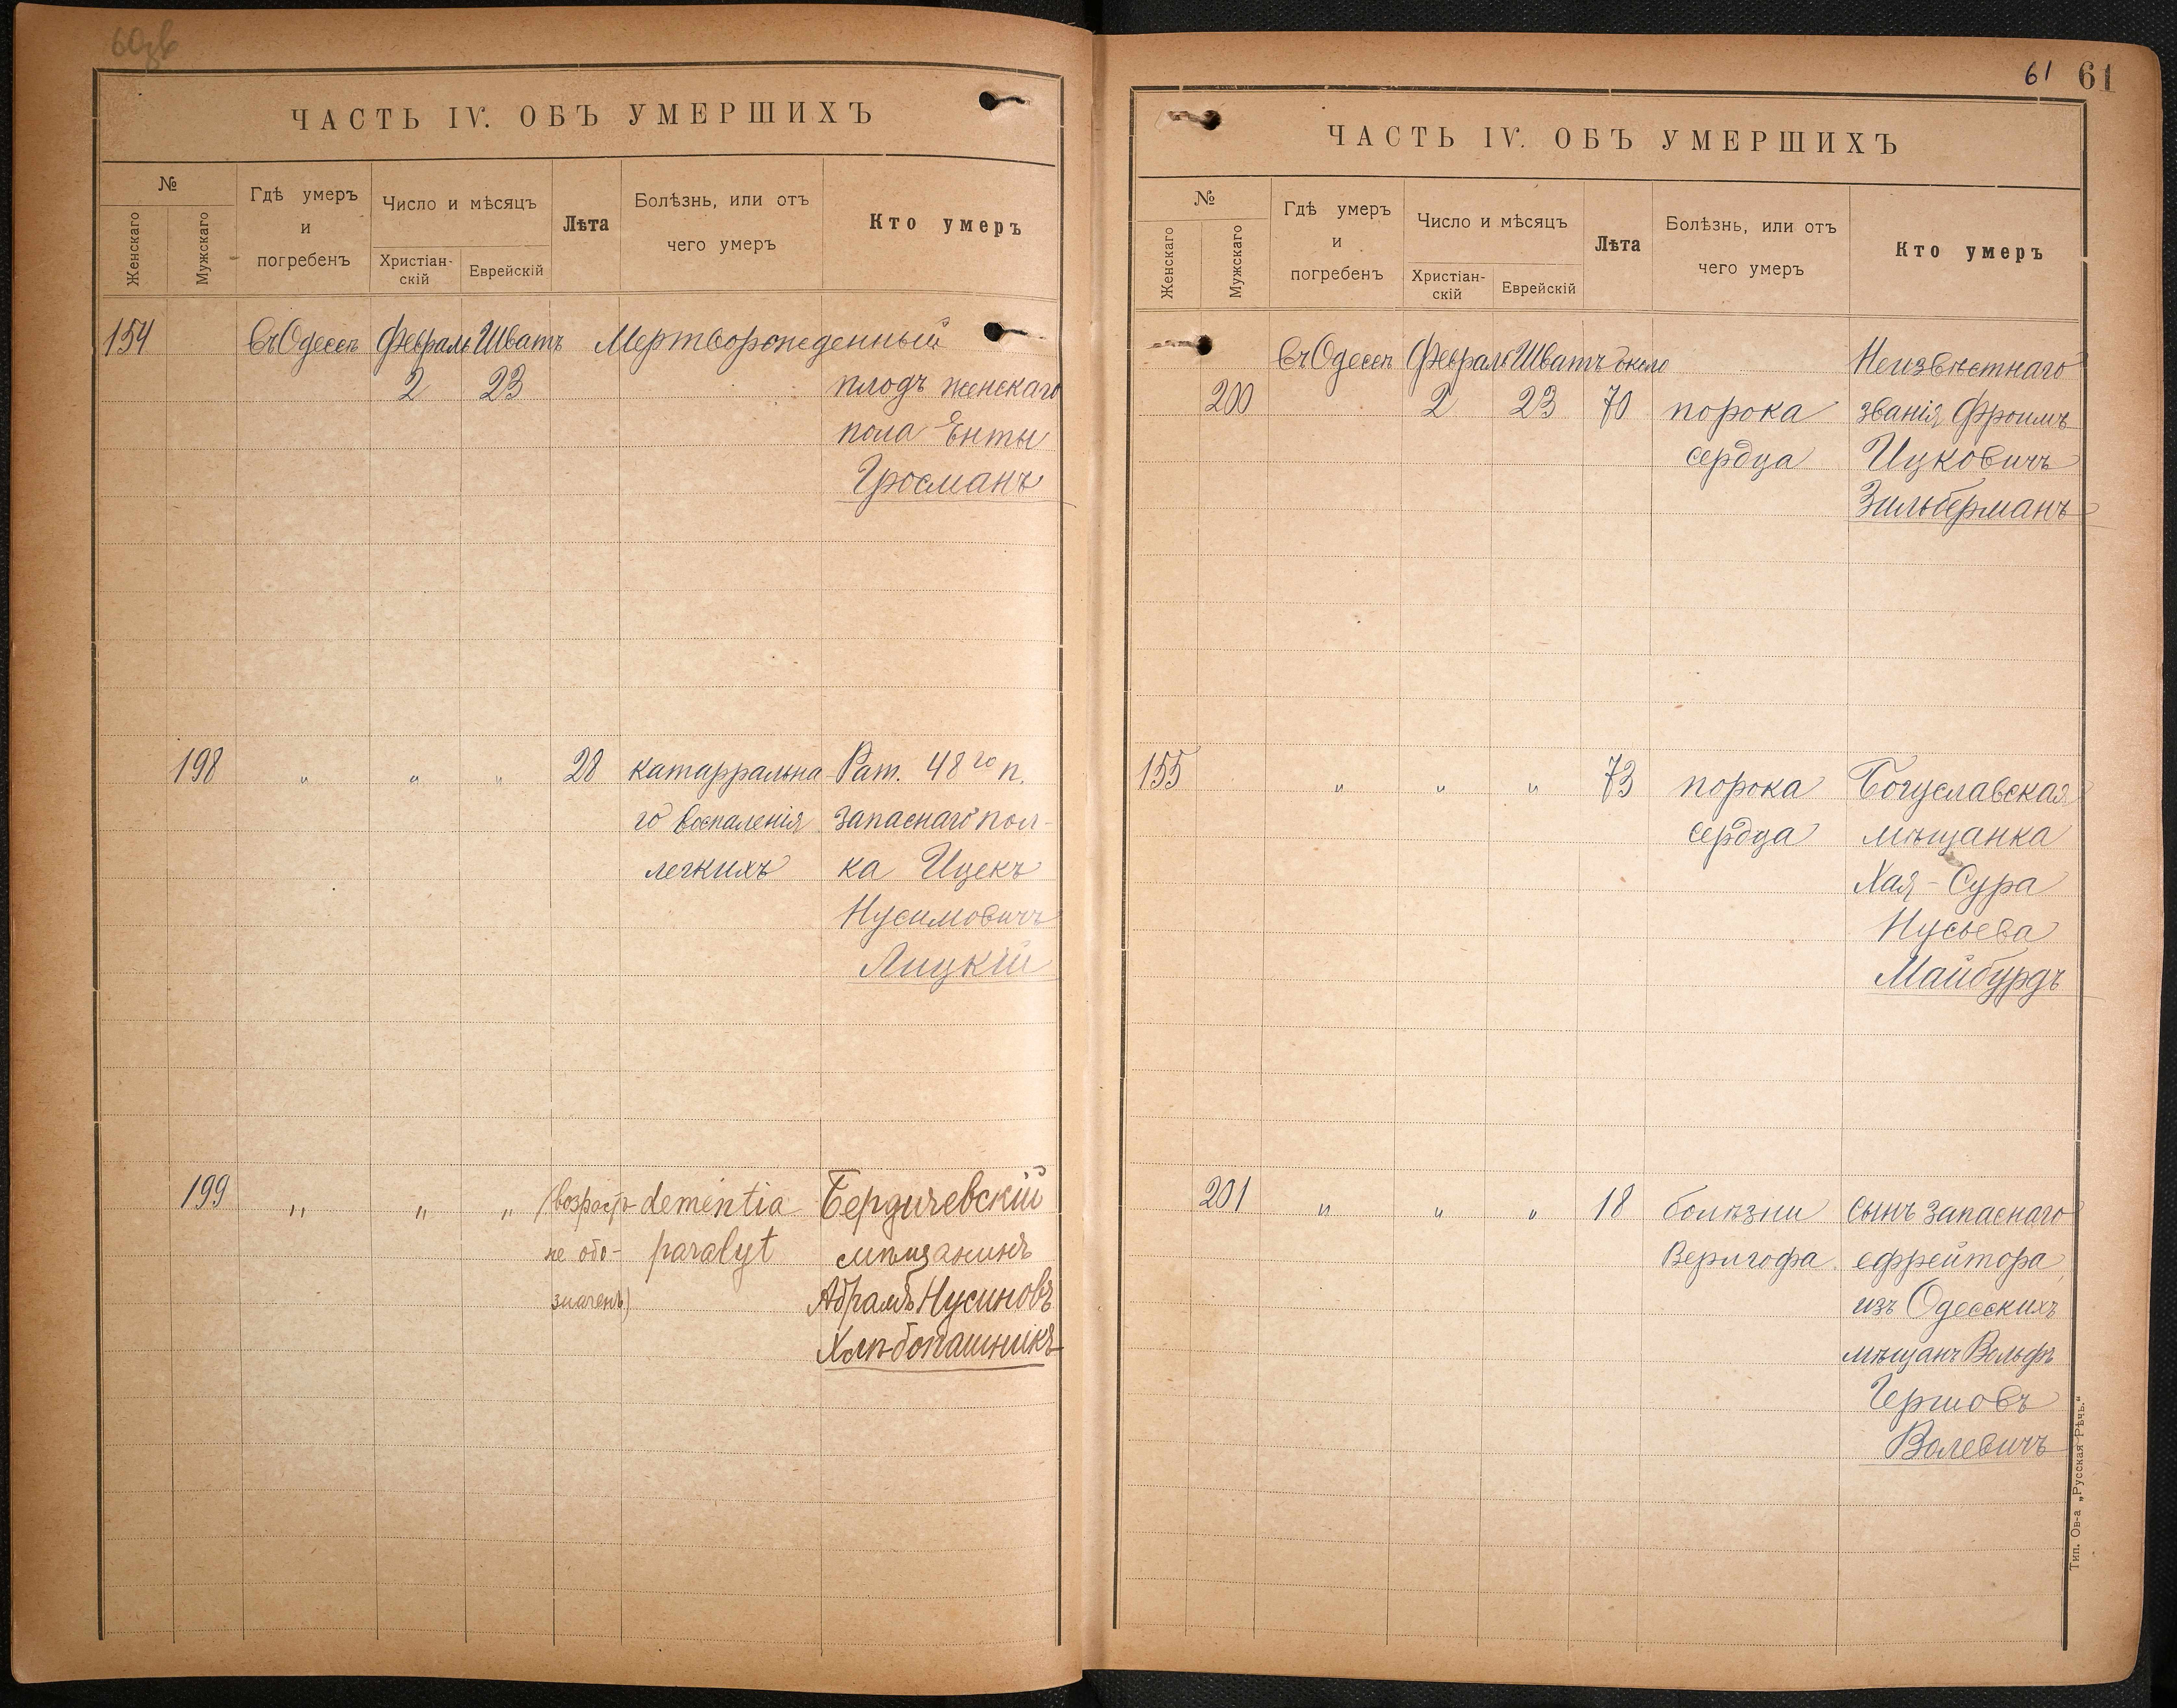 ЧАСТЬ IV. ОБЪ УМЕРШИХЪ
№
Женскаго
Мужскаго
Гдѣ умеръ
и
погребенъ
Число и мѣсяцъ
Христіан-
скій
Еврейскій
Лѣта
Болѣзнь, или отъ
чего умеръ
Кто умеръ
154 въ Одессѣ Февраль Шватъ Мертворожденный
2 23 плодъ женскаго
пола Енты
Гросманъ
198 " " " 28 катарральна- Рат. 48го п.
го воспаленія запаснаго пол-
легкихъ ка Ицекъ
Нусимовичъ
Лицкій
199 " " " (возрастъ dementia Бердичевскій
не обо- paralyt мѣщанинъ
значенъ) Абрамъ Нусиновъ
Хлѣбопашникъ
61 61
ЧАСТЬ IV. ОБЪ УМЕРШИХЪ
№
Женскаго
Мужскаго
Гдѣ умеръ
и
погребенъ
Число и мѣсяцъ
Христіан-
скій
Еврейскій
Лѣта
Болѣзнь, или отъ
чего умеръ
Кто умеръ
въ Одессѣ Февраль Шватъ около Неизвѣстнаго
200 2 23 70 порока званія Фроимъ
сердца Ицковичъ
Зильберманъ
155 " " " 73 порока Богуславская
сердца мѣщанка
Хая-Сура
Нусьева
Майбурдъ
201 " " " 18 болѣзни сынъ запаснаго
Верлгофа ефрейтора
изъ Одесскихъ
мѣщанъ Вольфъ
Гершовъ
Волевичъ
Тип. Ов-а „Русская Рѣчь.“